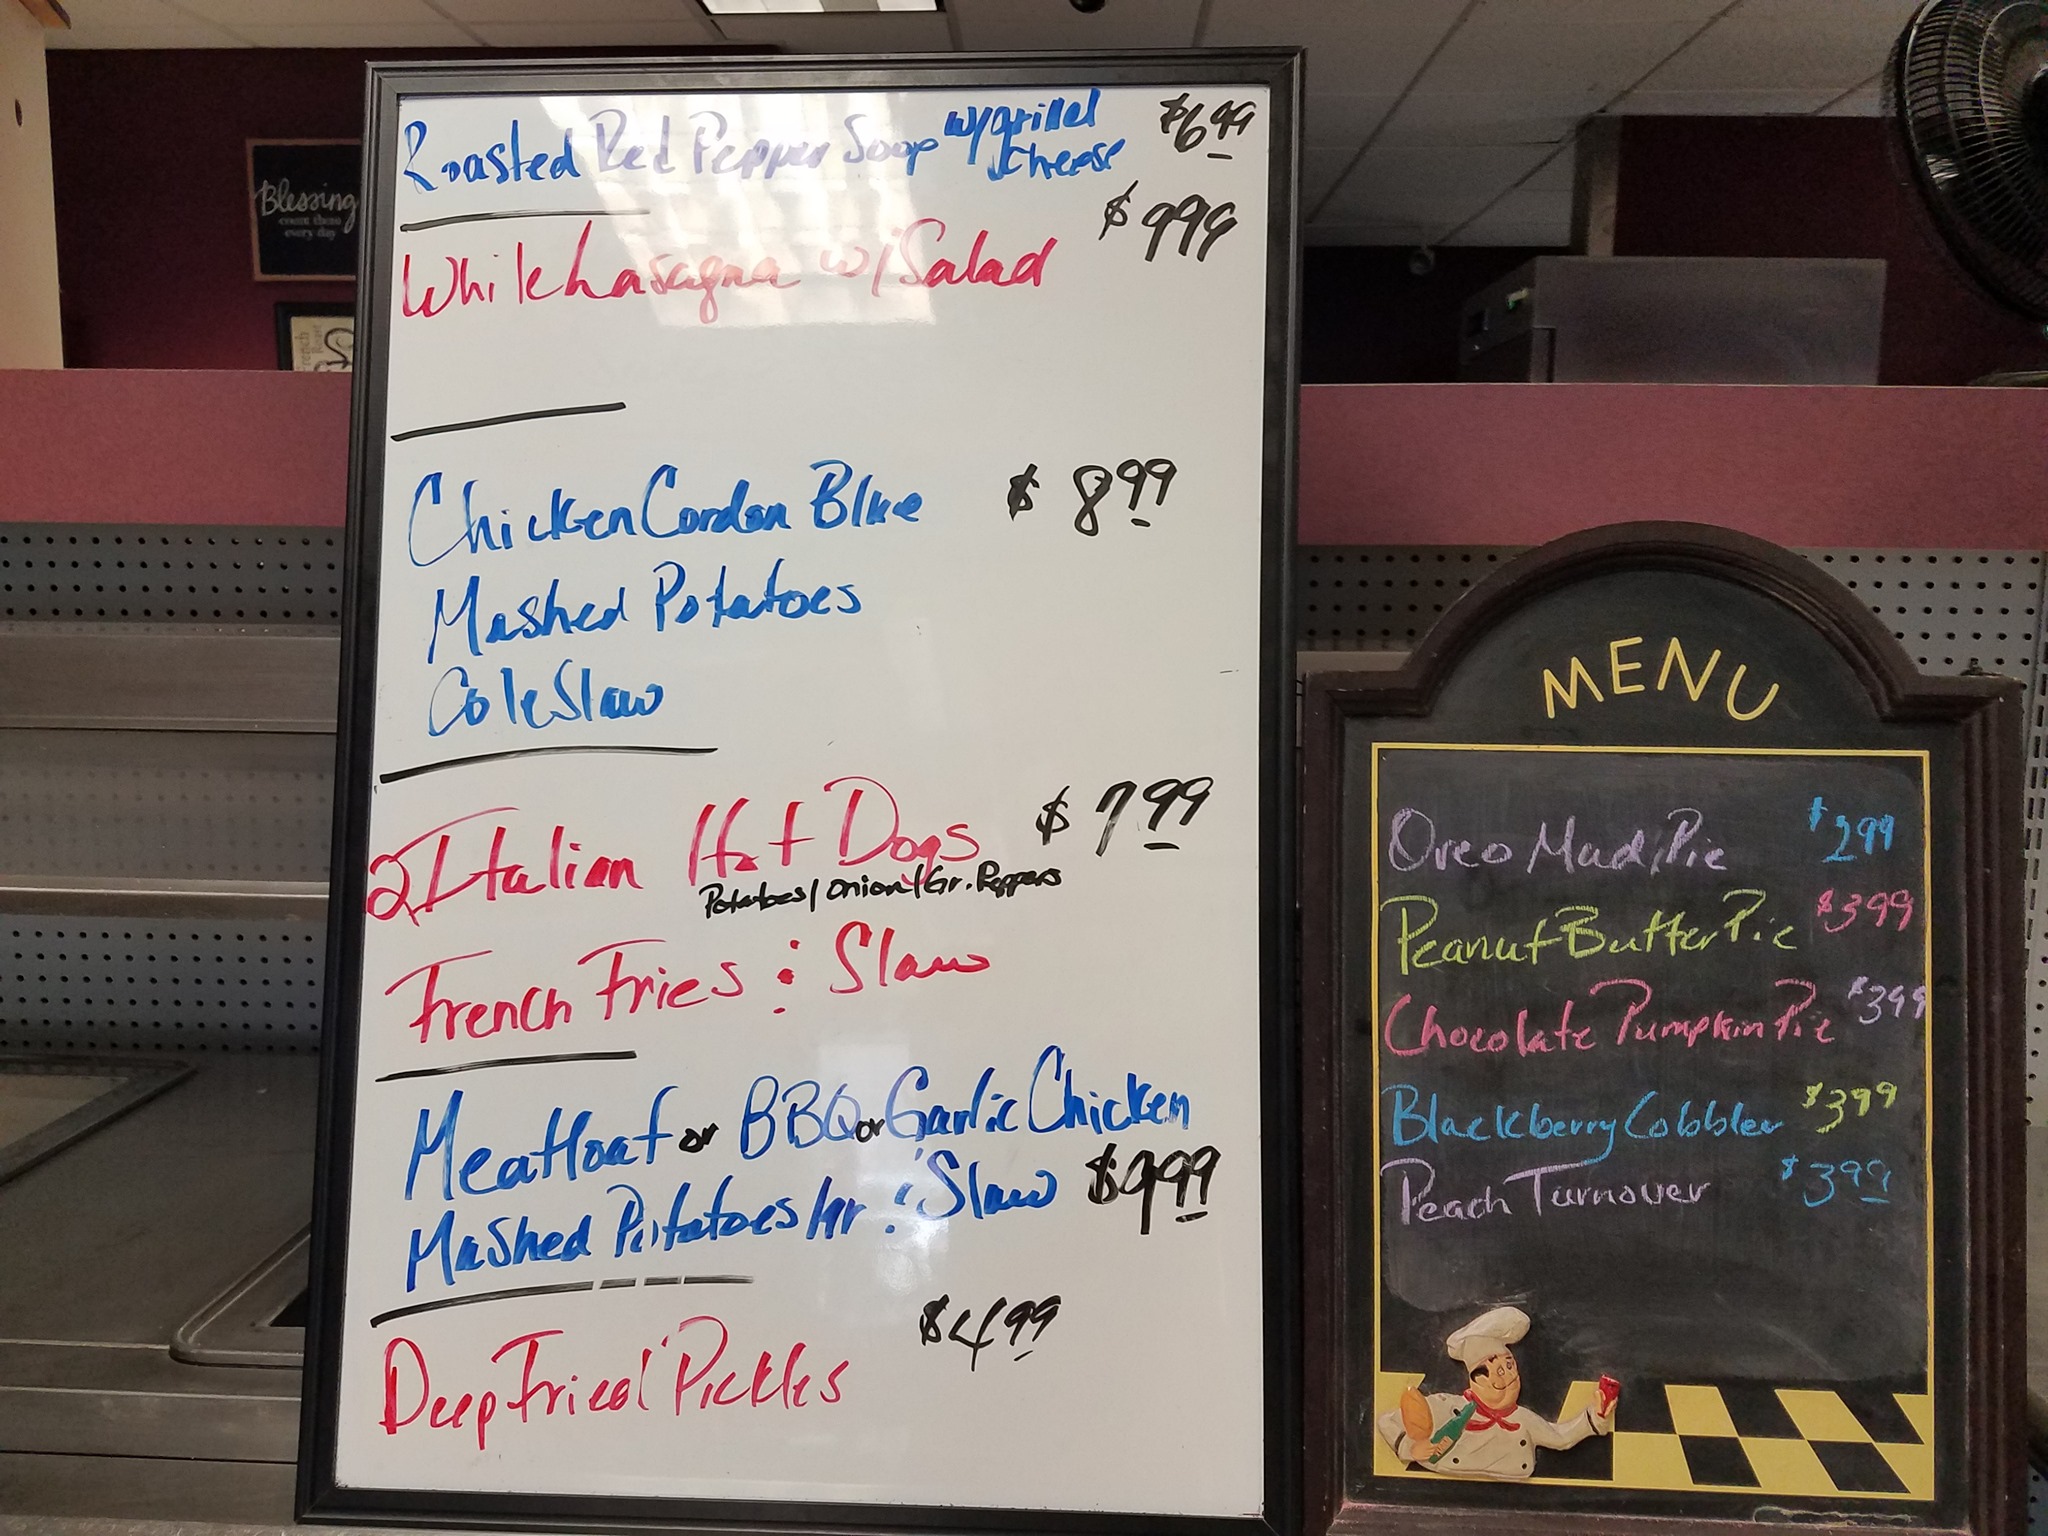 Blessing
count them
every day
French
Roast
Roasted Red Pepper Soup w/grilled Cheese $6.99
White Lasagna w/Salad $999
Chicken Cordon Blue $8.99
Mashed Potatoes
Cole Slaw
2 Italian Hot Dogs $7.99
Potatoes/Onion/Gr. Peppers
French Fries & Slaw
Meatloaf or BBQ or Garlic Chicken
Mashed Potatoes/Gr & Slaw $9.99
Deep Fried Pickles $4.99
MENU
Oreo Mud Pie $299
Peanut Butter Pie $399
Chocolate Pumpkin Pie $399
Blackberry Cobbler $399
Peach Turnover $399